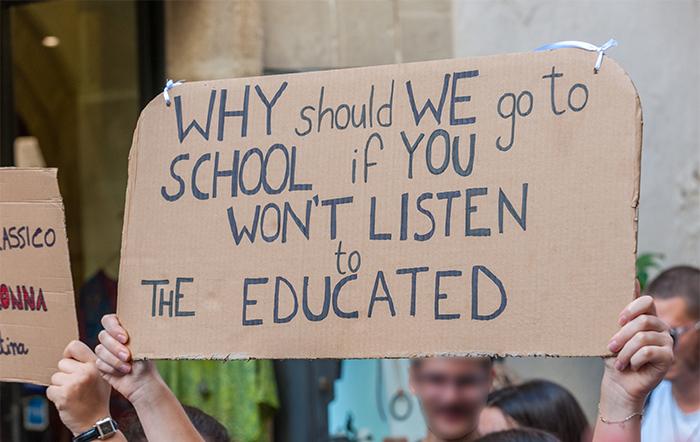 WHY should WE go to
SCHOOL if YOU
WON'T LISTEN
to
THE EDUCATED